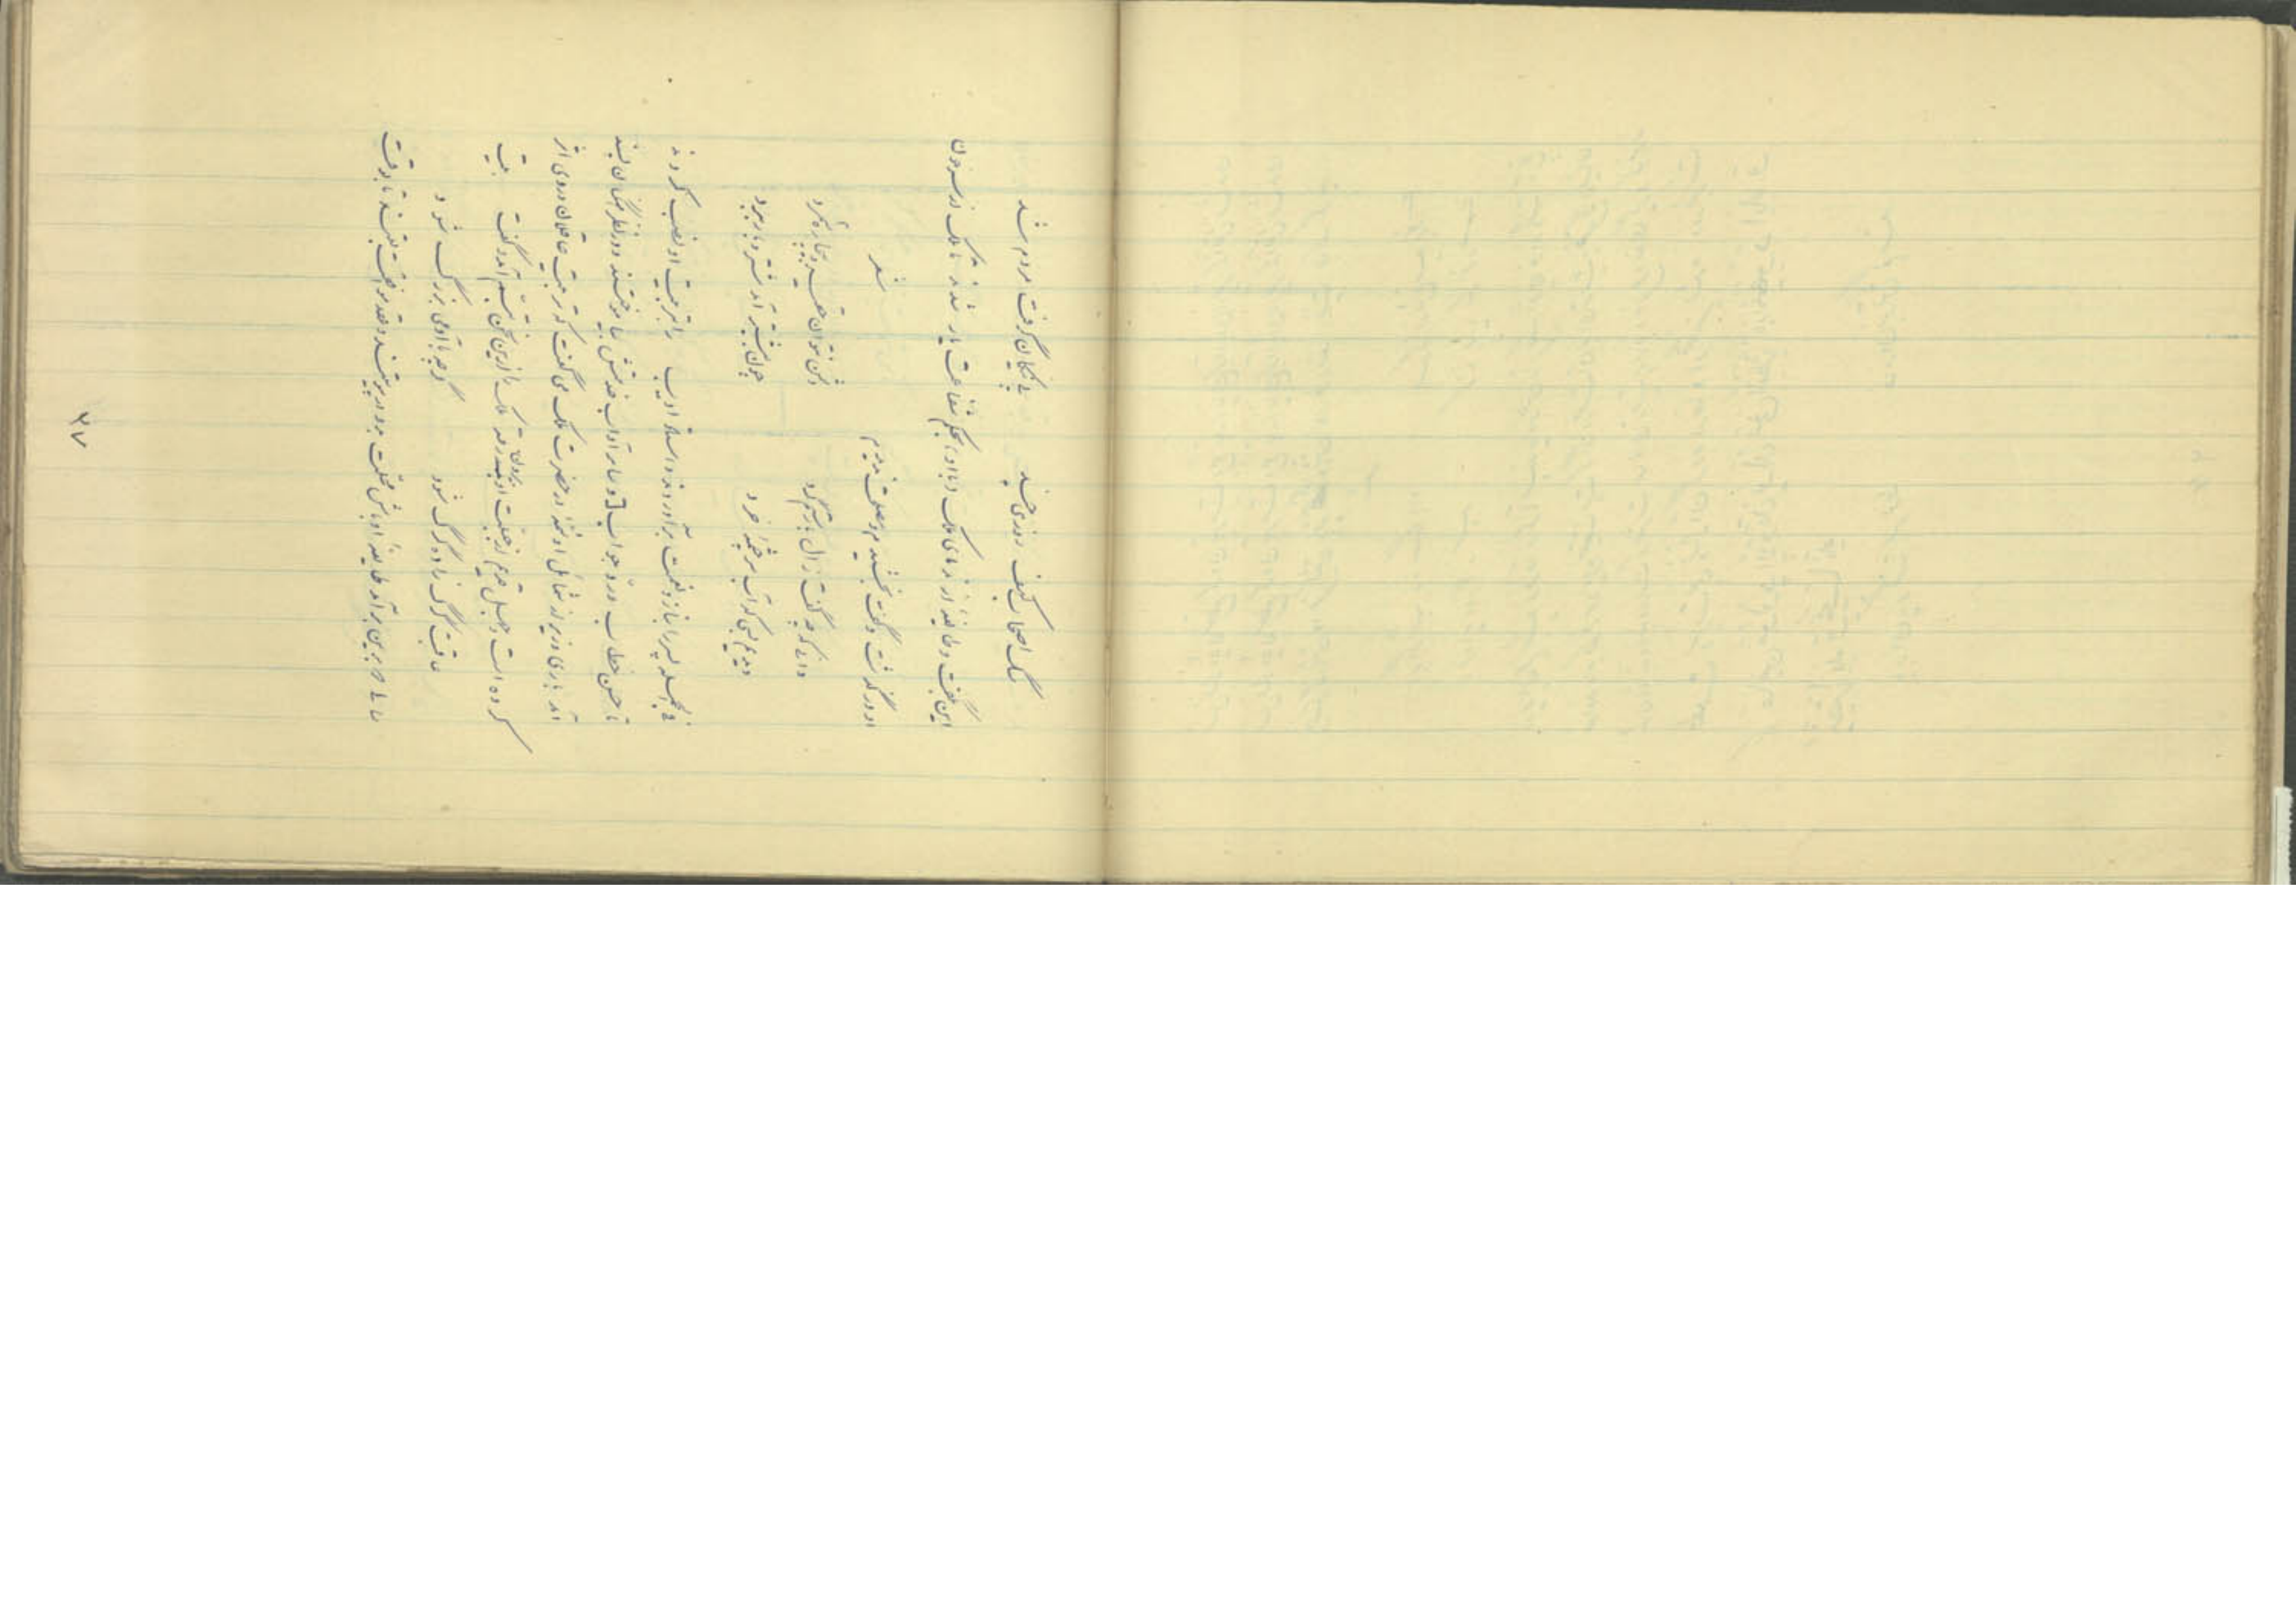 سگ اصحاب کهف روزی چند پی نیکان گرفت مردم شد
این بگفت و طائفهٔ از ندمای ملک با او بحکم شفاعت یار شدند تا ملک از سر خون
او درگذشت و گفت بخشیدم و مصلحت ندیدم شعر
دانی که چه گفت زال با رستم گرد دشمن نتوان حقیر و بیچاره شمرد
دیدیم بسی که آب سرچشمهٔ خرد چون بیشتر آمد شتر و بار ببرد
فی الجمله پسر را بناز و نعمت برآوردند و استاد ادیب را بتربیت او نصب کردند
تا حسن خطاب و رد جواب و سایر آداب خدمتش بیاموختند و در نظر همگان پسند
آمد باری وزیر از شمائل او شمهٔ در حضرت ملک می گفت که تربیت عاقلان در وی اثر
کرده است و جهل قدیم از جبلت او بیرون رفته ملک را ازین سخن تبسم آمد و گفت بیت
عاقبت گرگ زاده گرگ شود گرچه با آدمی بزرگ شود
سالی دو برین برآمد طایفهٔ اوباش محلت برو در پیوستند و عقد موافقت ببستند تا بوقت
٣٧